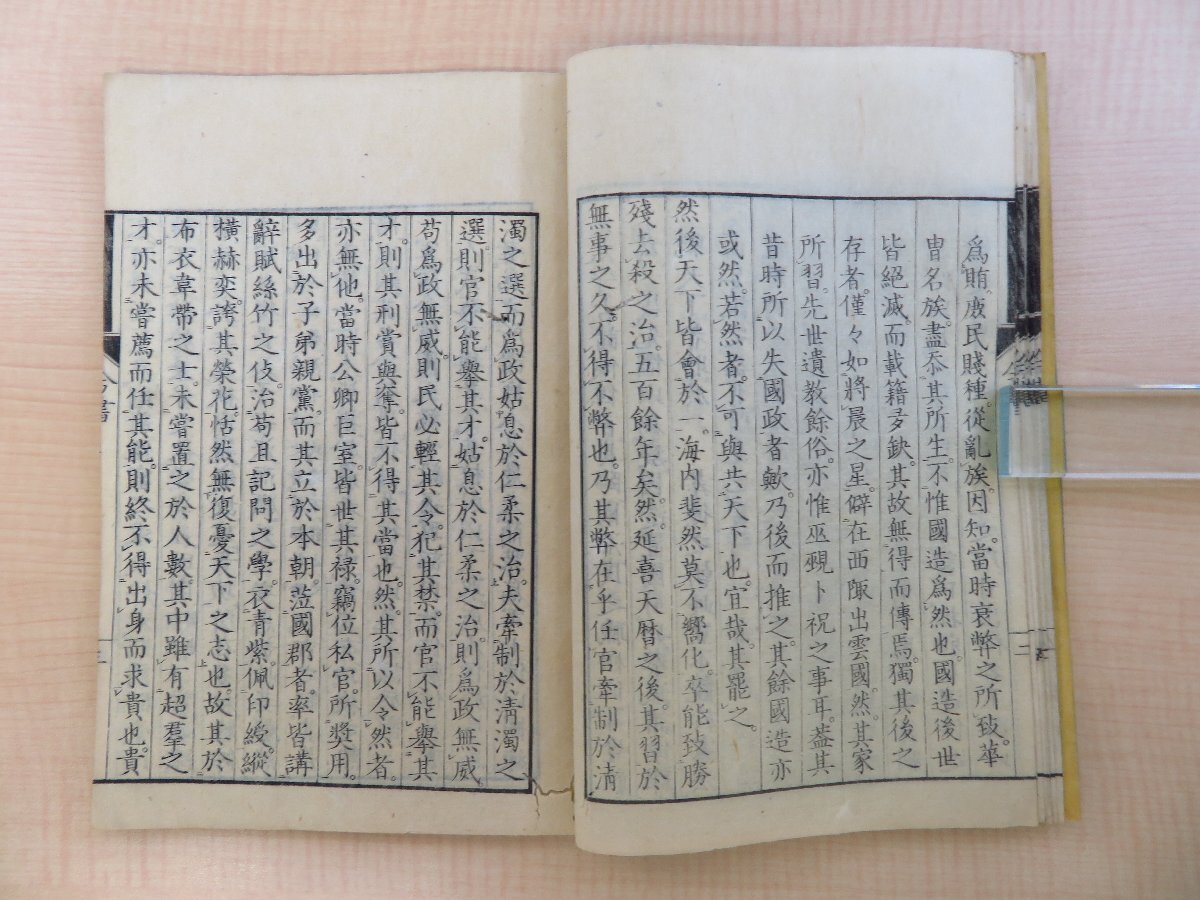 爲賄、廢民賤種。從亂族。因知。當時衰弊之所致。華
冑名族。盡忝其所生。不惟國造爲然也。國造後世
皆絕滅。而載籍多缺。其故無得而傳焉。獨其後之
存者。僅々如將晨之星。僻在西陬出雲國。然其家
所習。先世遺敎餘俗。亦惟巫覡卜祝之事耳。蓋其
昔時所以失國政者歟。乃後而推之。其餘國造亦
或然。若然者。不可與共天下也。宜哉。其罷之。
然後天下皆會於一。海內斐然莫不嚮化。卒能致勝
殘去殺之治。五百餘年矣。然延喜天曆之後。其習於
無事之久。不得不弊也。乃其弊在乎任官牽制於淸
濁之選。而爲政姑息於仁柔之治。夫牽制於淸濁之
選。則官不能舉其才。姑息於仁柔之治。則爲政無威。
苟爲政無威。則民必輕其令。犯其禁。而官不能舉其
才。則其刑賞與奪。皆不得其當也。然其所以令然者。
亦無他。當時公卿巨室。皆世其祿。竊位私官。所奬用。
多出於子弟親黨。而其立於本朝。蒞國郡者。率皆講
辭賦絲竹之伎。治苟且記問之學。衣靑紫。佩印綬。縱
橫赫奕。誇其榮花。恬然無復憂天下之志也。故其於
布衣韋帶之士。未嘗置之於人數。其中雖有超羣之
才。亦未嘗薦而任其能。則終不得出身而求貴也。貴
二
三